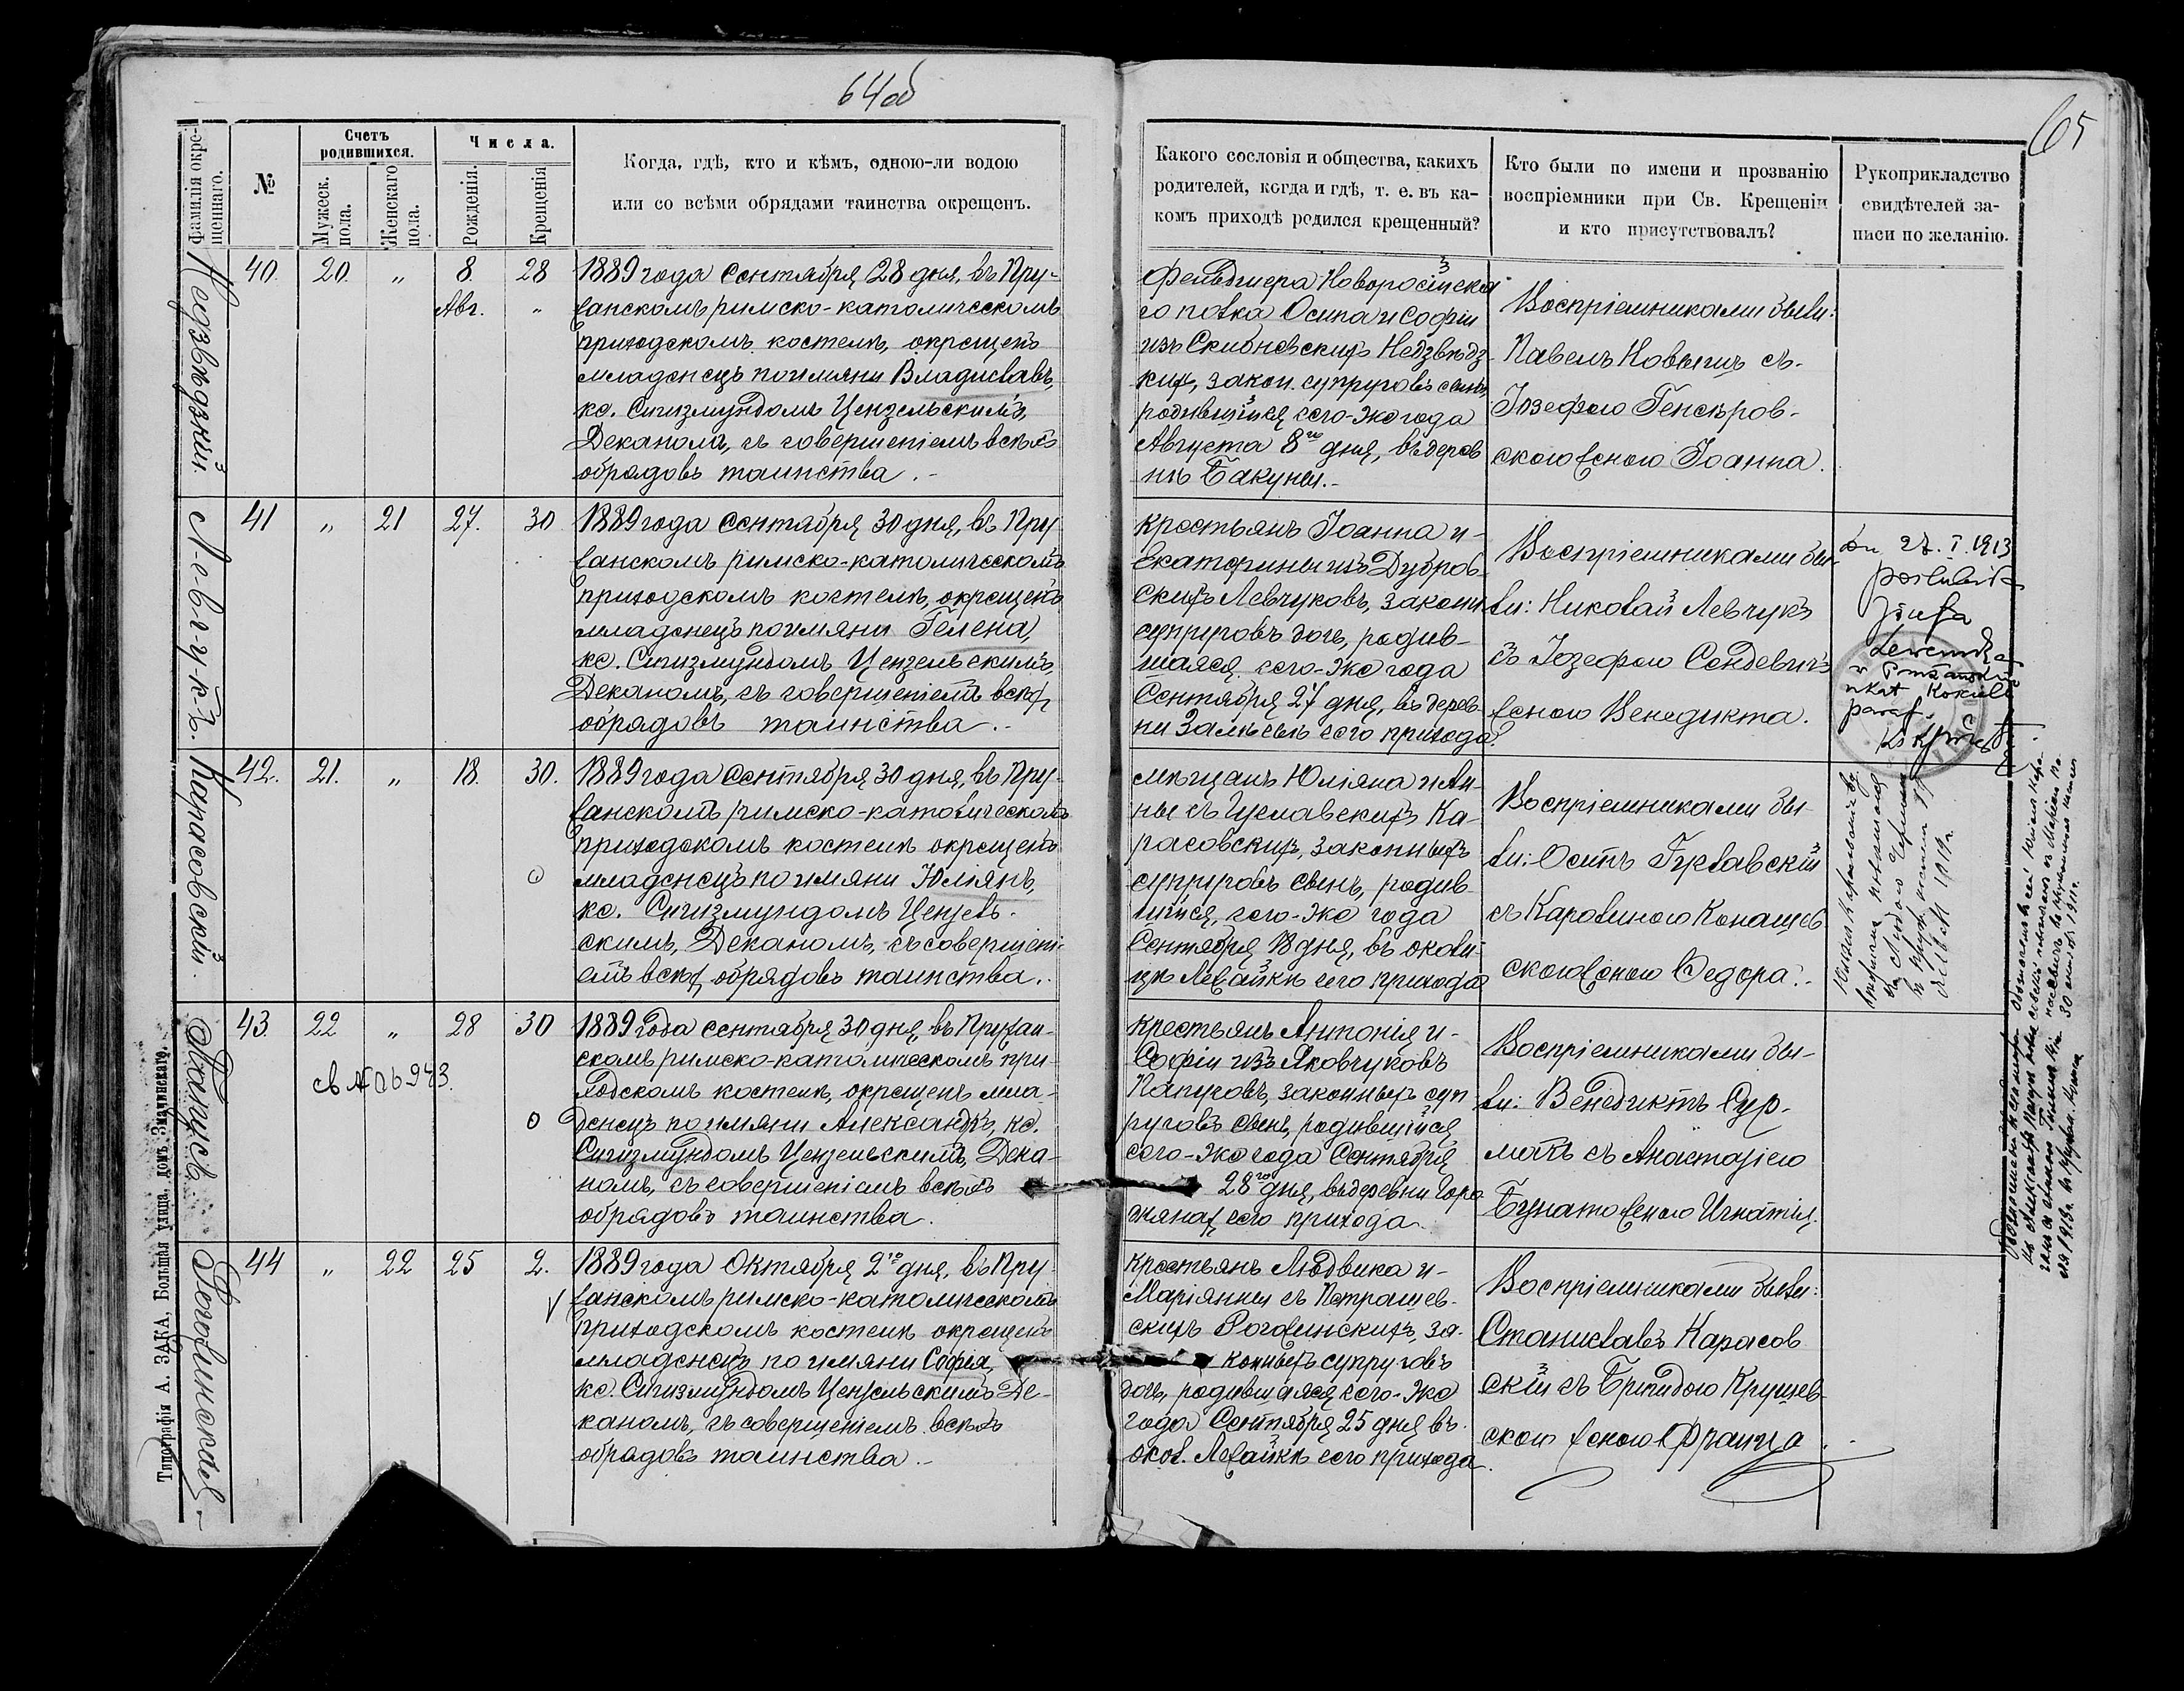 64об
65
Фамилія окре-
щеннаго.
№
Счетъ
родившихся.
Мужеск.
пола.
Женскаго
пола.
Числа.
Рожденія.
Крещенія
Когда, гдѣ, кто и кѣмъ, одною-ли водою
или со всѣми обрядами таинства окрещенъ.
Какого сословія и общества, какихъ
родителей, когда и гдѣ, т. е. въ ка-
комъ приходѣ родился крещенный?
Кто были по имени и прозванію
воспріемники при Св. Крещеніи
и кто присутствовалъ?
Рукоприкладство
свидѣтелей за-
писи по желанію.
Недзвѣдзкій
40. 20. „ 8. 28
Авг. „
1889 года Сентября 28 дня, въ Пру-
жанскомъ римско-католическомъ
приходскомъ костелѣ, окрещенъ
младенецъ по имяни Владиславъ,
кс. Сигизмундомъ Цензельскимъ,
Деканома, съ совершеніемъ всѣхъ
обрядовъ таинства.-
Фельдшера Новоросійска
го полка Осипа и Софіи
изъ Скибневскихъ Недзвѣдз-
кихъ, закон. супруговъ сынъ,
родившійся сего-же года
Августа 8го дня, въ дерев
нѣ Бакуны.-
Воспріемниками были:
Павелъ Новышъ съ-
Іозефою Генсѣров-
скою женою Іоанна.
Левчукъ.
41 „ 21 27. 30
1889 года Сентября 30 дня, въ Пру
жанскомъ римско-католическомъ
приходскомъ костелѣ, окрещенъ
младенецъ по имяни Гелена,
кс. Сигизмундомъ Цензельскимъ,
Деканомъ, съ совершеніемъ всѣхъ
обрядовъ таинства.-
Крестьянъ Іоанна и-
Екатерины изъ Дубров-
скихъ Левчуковъ, законн.
супруговъ дочь, родив-
шаяся сего-же года
Сентября 27 дня, въ дерев
ни Замлынѣ сего прихода.
Воспріемниками бы-
ли: Николай Левчукъ
съ Іозефою Сендевичъ
женою Венедикта.
Dn 27. I. 1913
poślubiła
Józefa
paraf.
Карасовскій.
42. 21. „ 18. 30.
1889 года Сентября 30 дня, въ Пру-
жанскомъ римско-католическомъ
приходскомъ костелѣ окрещенъ
младенецъ по имяни Юліянъ,
кс. Сигизмундомъ Цензель-
скимъ, Деканомъ, съ совершені-
емъ всѣхъ обрядовъ таинства.-
Мѣщанъ Юліяна и Ан-
ны съ Гуславскихъ Ка-
расовскихъ, законныхъ
супруговъ сынъ, родив-
шійся, сего-же года
Сентября 18 дня, въ околи-
цѣ Левайкѣ сего прихода
Воспріемниками бы-
ли: Осипъ Гуславскій
съ Каролиною Конашев
скою женою Ѳедора.-
Папусь.
43. 22 „ 28 30
св № 06 943.
1889 года Сентября 30 дня, въ Пружан-
скомъ римско-католическомъ при-
ходскомъ костелѣ, окрещенъ мла-
денецъ по имяни Александръ, кс.
Сигизмундомъ Цензельскимъ, Дека-
номъ, съ совершеніемъ всѣхъ
обрядовъ таинства.
Крестьянъ Антонія и-
Софіи изъ Яковчуковъ
Папусовъ, законныхъ суп-
руговъ сынъ, родившійся
сего-же года Сентября
28го дня, въ деревни Горо
жянахъ сего прихода.
Воспріемниками бы-
ли: Венедиктъ Сур-
матъ съ Анастазіею
Бунато женою Игнатія.
Роговинская.-
44 „ 22 25 2.
1889 года Октября 2го дня, въ Пру-
жанскомъ римско-католическомъ
приходскомъ костелѣ окрещенъ
младенецъ по имяни Софія,
кс. Сигизмундомъ Цензельскимъ Де-
каномъ, съ совершеніемъ всѣхъ
обрядовъ таинства.-
Крестьянъ Людвика и-
Маріянны съ Петрашев-
скихъ Роговинскихъ, за-
конныхъ супруговъ
дочь, родившаяся сего-же
года Сентября 25 дня въ
окол. Левайкѣ сего прихода.
Воспріемниками были:
Станиславъ Карасов
скій съ Бригидою Крушев-
скою женою Франца.-
Типографія А. ЗАКА, Большая улица, домъ Значинскаго.